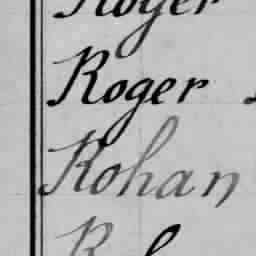 Royer
Roger
Rohan